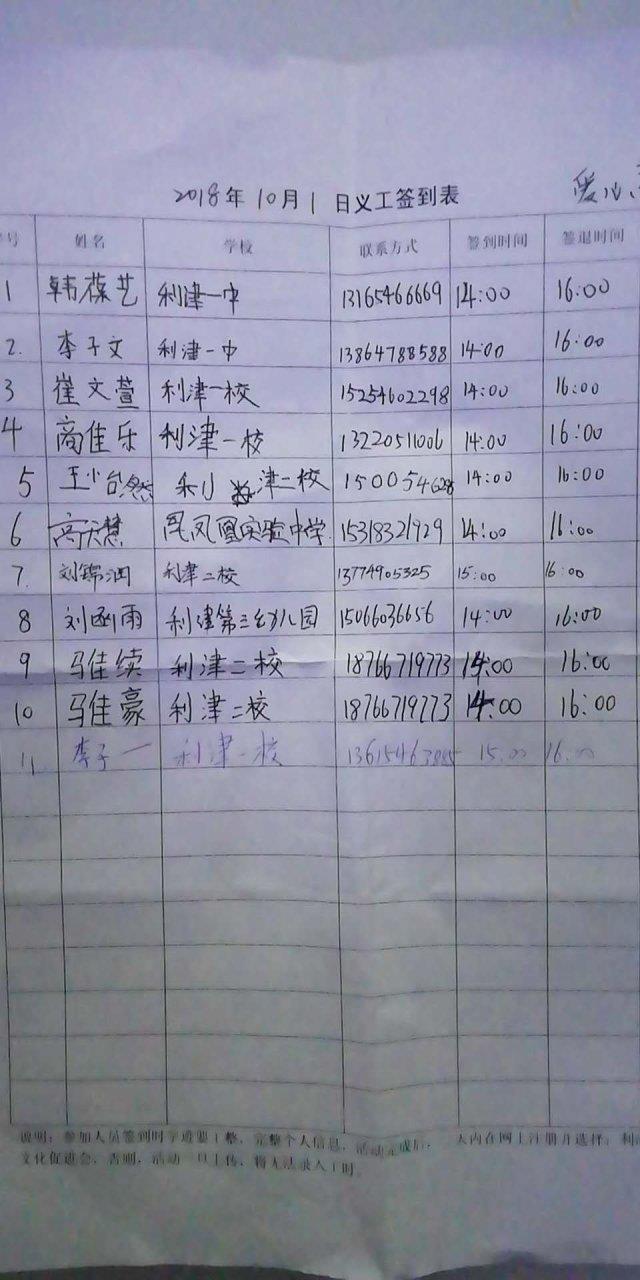 爱心
2018年10月1日义工签到表
号 姓名 学校 联系方式 签到时间 签退时间
1 韩葆艺 利津一中 13165466669 14:00 16:00
2. 李子文 利津一中 13864788588 14:00 16:00
3 崔文萱 利津一校 15254602298 14:00 16:00
4 高佳乐 利津一校 13220511006 14:00 16:00
5 王小 利津二校 14:00 16:00
6 高天慧 凤凰实验中学 15318321929 14:00 16:00
7. 刘锦润 利津二校 13774905325 15:00 16:00
8 刘函雨 利津第三幼儿园 15066036656 14:00 16:00
9 马佳续 利津二校 18766719773 14:00 16:00
10 马佳豪 利津二校 18766719773 14:00 16:00
11 李子一 利津一校 15:00 16:00
说明：参加人员签到时字迹要工整，完整个人信息，活动完成后， 天内在网上注册并选择：利
文化促进会，否则，活动一旦上传，将无法录入工时。